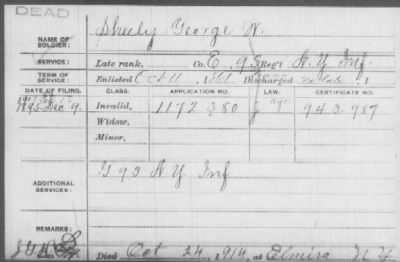 DEAD
NAME OF SOLDIER: Sheely George W.
SERVICE: Late rank, Co. E, 93 Reg't N.Y. Inf.
TERM OF SERVICE: Enlisted Oct 11, 1861 Discharged no date, 1
DATE OF FILING. CLASS. APPLICATION NO. LAW. CERTIFICATE NO.
1895 Dec 9. Invalid, 1172380 943.987
Widow,
Minor,
ADDITIONAL SERVICES: G 93 N.Y. Inf
REMARKS:
Died Oct 24, 1914, at Elmira N.Y.